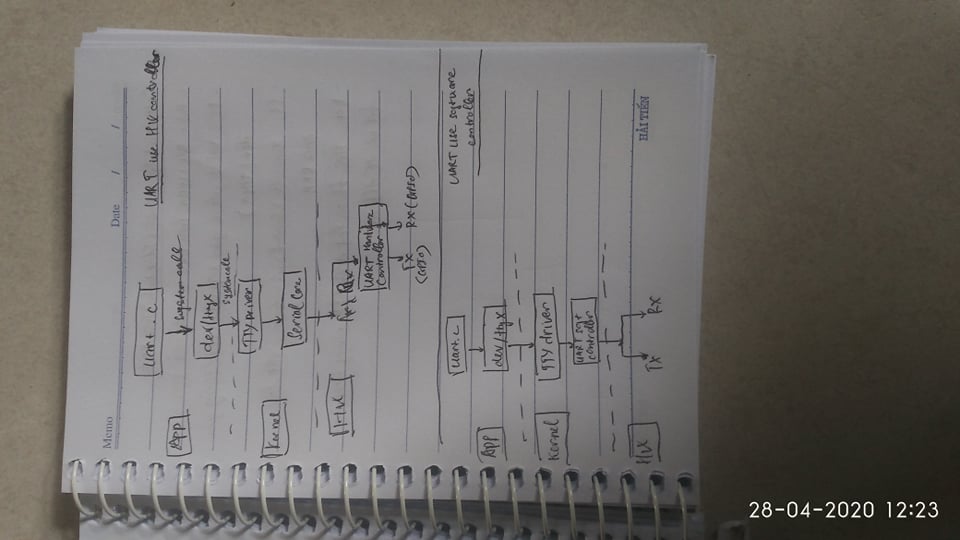 Memo
Date / /
uart.c
UART use HW controller
App
system call
dev/ttyX
system call
TTY Driver
Kernel
Serial Core
HW
UART Hardware
Controller
TX RX (GPIO)
(GPIO)
uart.c
UART use software
controller
App
dev/ttyX
Kernel
TTY driver
UART soft
controller
HW
TX RX
HẢI TIẾN
28-04-2020 12:23